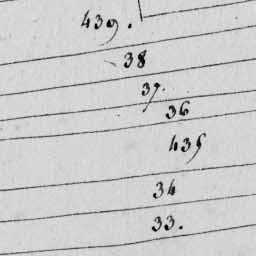 439.
38
37.
36
435
34
33.